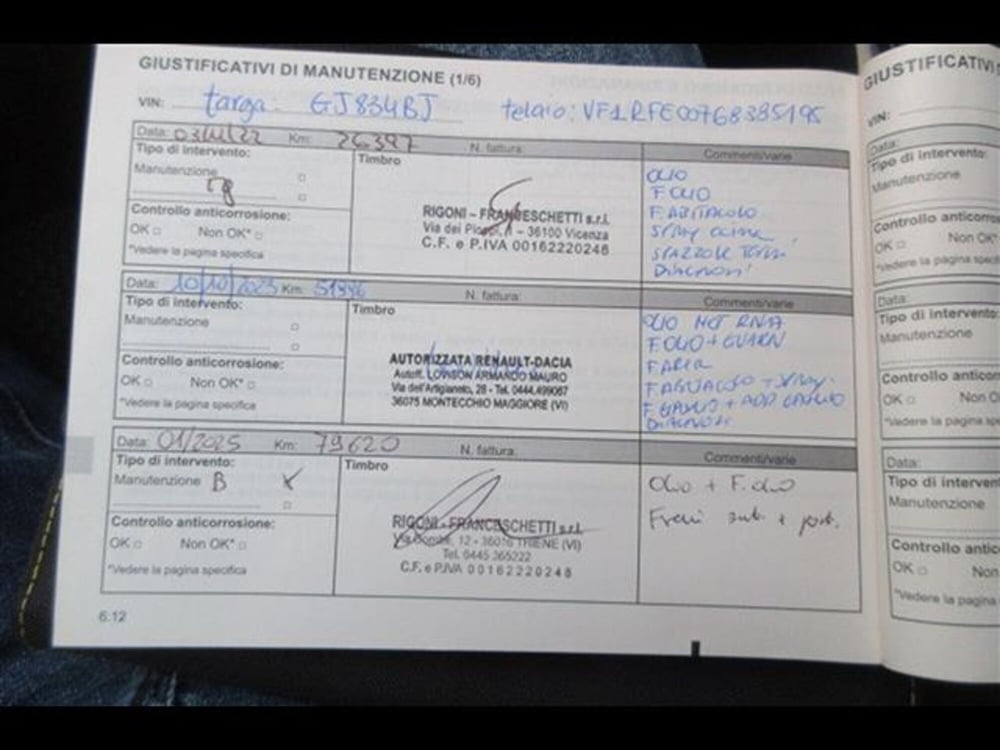 GIUSTIFICATIVI DI MANUTENZIONE (1/6)
VIN: targa: GJ834BJ telaio: VF1RFE00768385195
Data: Km: 26397 N. fattura:
Tipo di intervento: Timbro Commenti/varie
Manutenzione
Controllo anticorrosione:
OK Non OK*
*Vedere la pagina specifica
RIGONI - FRANCESCHETTI s.r.l.
36100 Vicenza
C.F. e P.IVA 00162220248
OLIO
F. OLIO
F. ABITACOLO
SPRAY
SPAZZOLE
DIAGNOSI
Data: 10/10/2023 Km: N. fattura:
Tipo di intervento: Timbro Commenti/varie
Manutenzione
Controllo anticorrosione:
OK Non OK*
*Vedere la pagina specifica
AUTORIZZATA RENAULT-DACIA
Autoff. LOVISON ARMANDO MAURO
Via dell'Artigianato, 28 - Tel. 0444.499067
36075 MONTECCHIO MAGGIORE (VI)
OLIO MOT
F. OLIO + GUARN
F. ARIA
F. GASOLIO + ADD GASOLIO
DIAGNOSI
Data: 01/2025 Km: 79620 N. fattura:
Tipo di intervento: Timbro Commenti/varie
Manutenzione B X
Controllo anticorrosione:
OK Non OK*
*Vedere la pagina specifica
RIGONI - FRANCESCHETTI s.r.l.
Via Gombe, 12 - 36016 THIENE (VI)
Tel. 0445 365222
C.F. e P.IVA 00162220248
Olio + F. olio
Freni ant. + post.
6.12
GIUSTIFICATIVI
VIN:
Data:
Tipo di intervento:
Manutenzione
Controllo anticorros
OK Non OK*
*Vedere la pagina speci
Data:
Tipo di intervento:
Manutenzione
Controllo anticor
OK Non O
*Vedere la pagina
Data:
Tipo di interven
Manutenzione
Controllo antic
OK Non
*Vedere la pagina